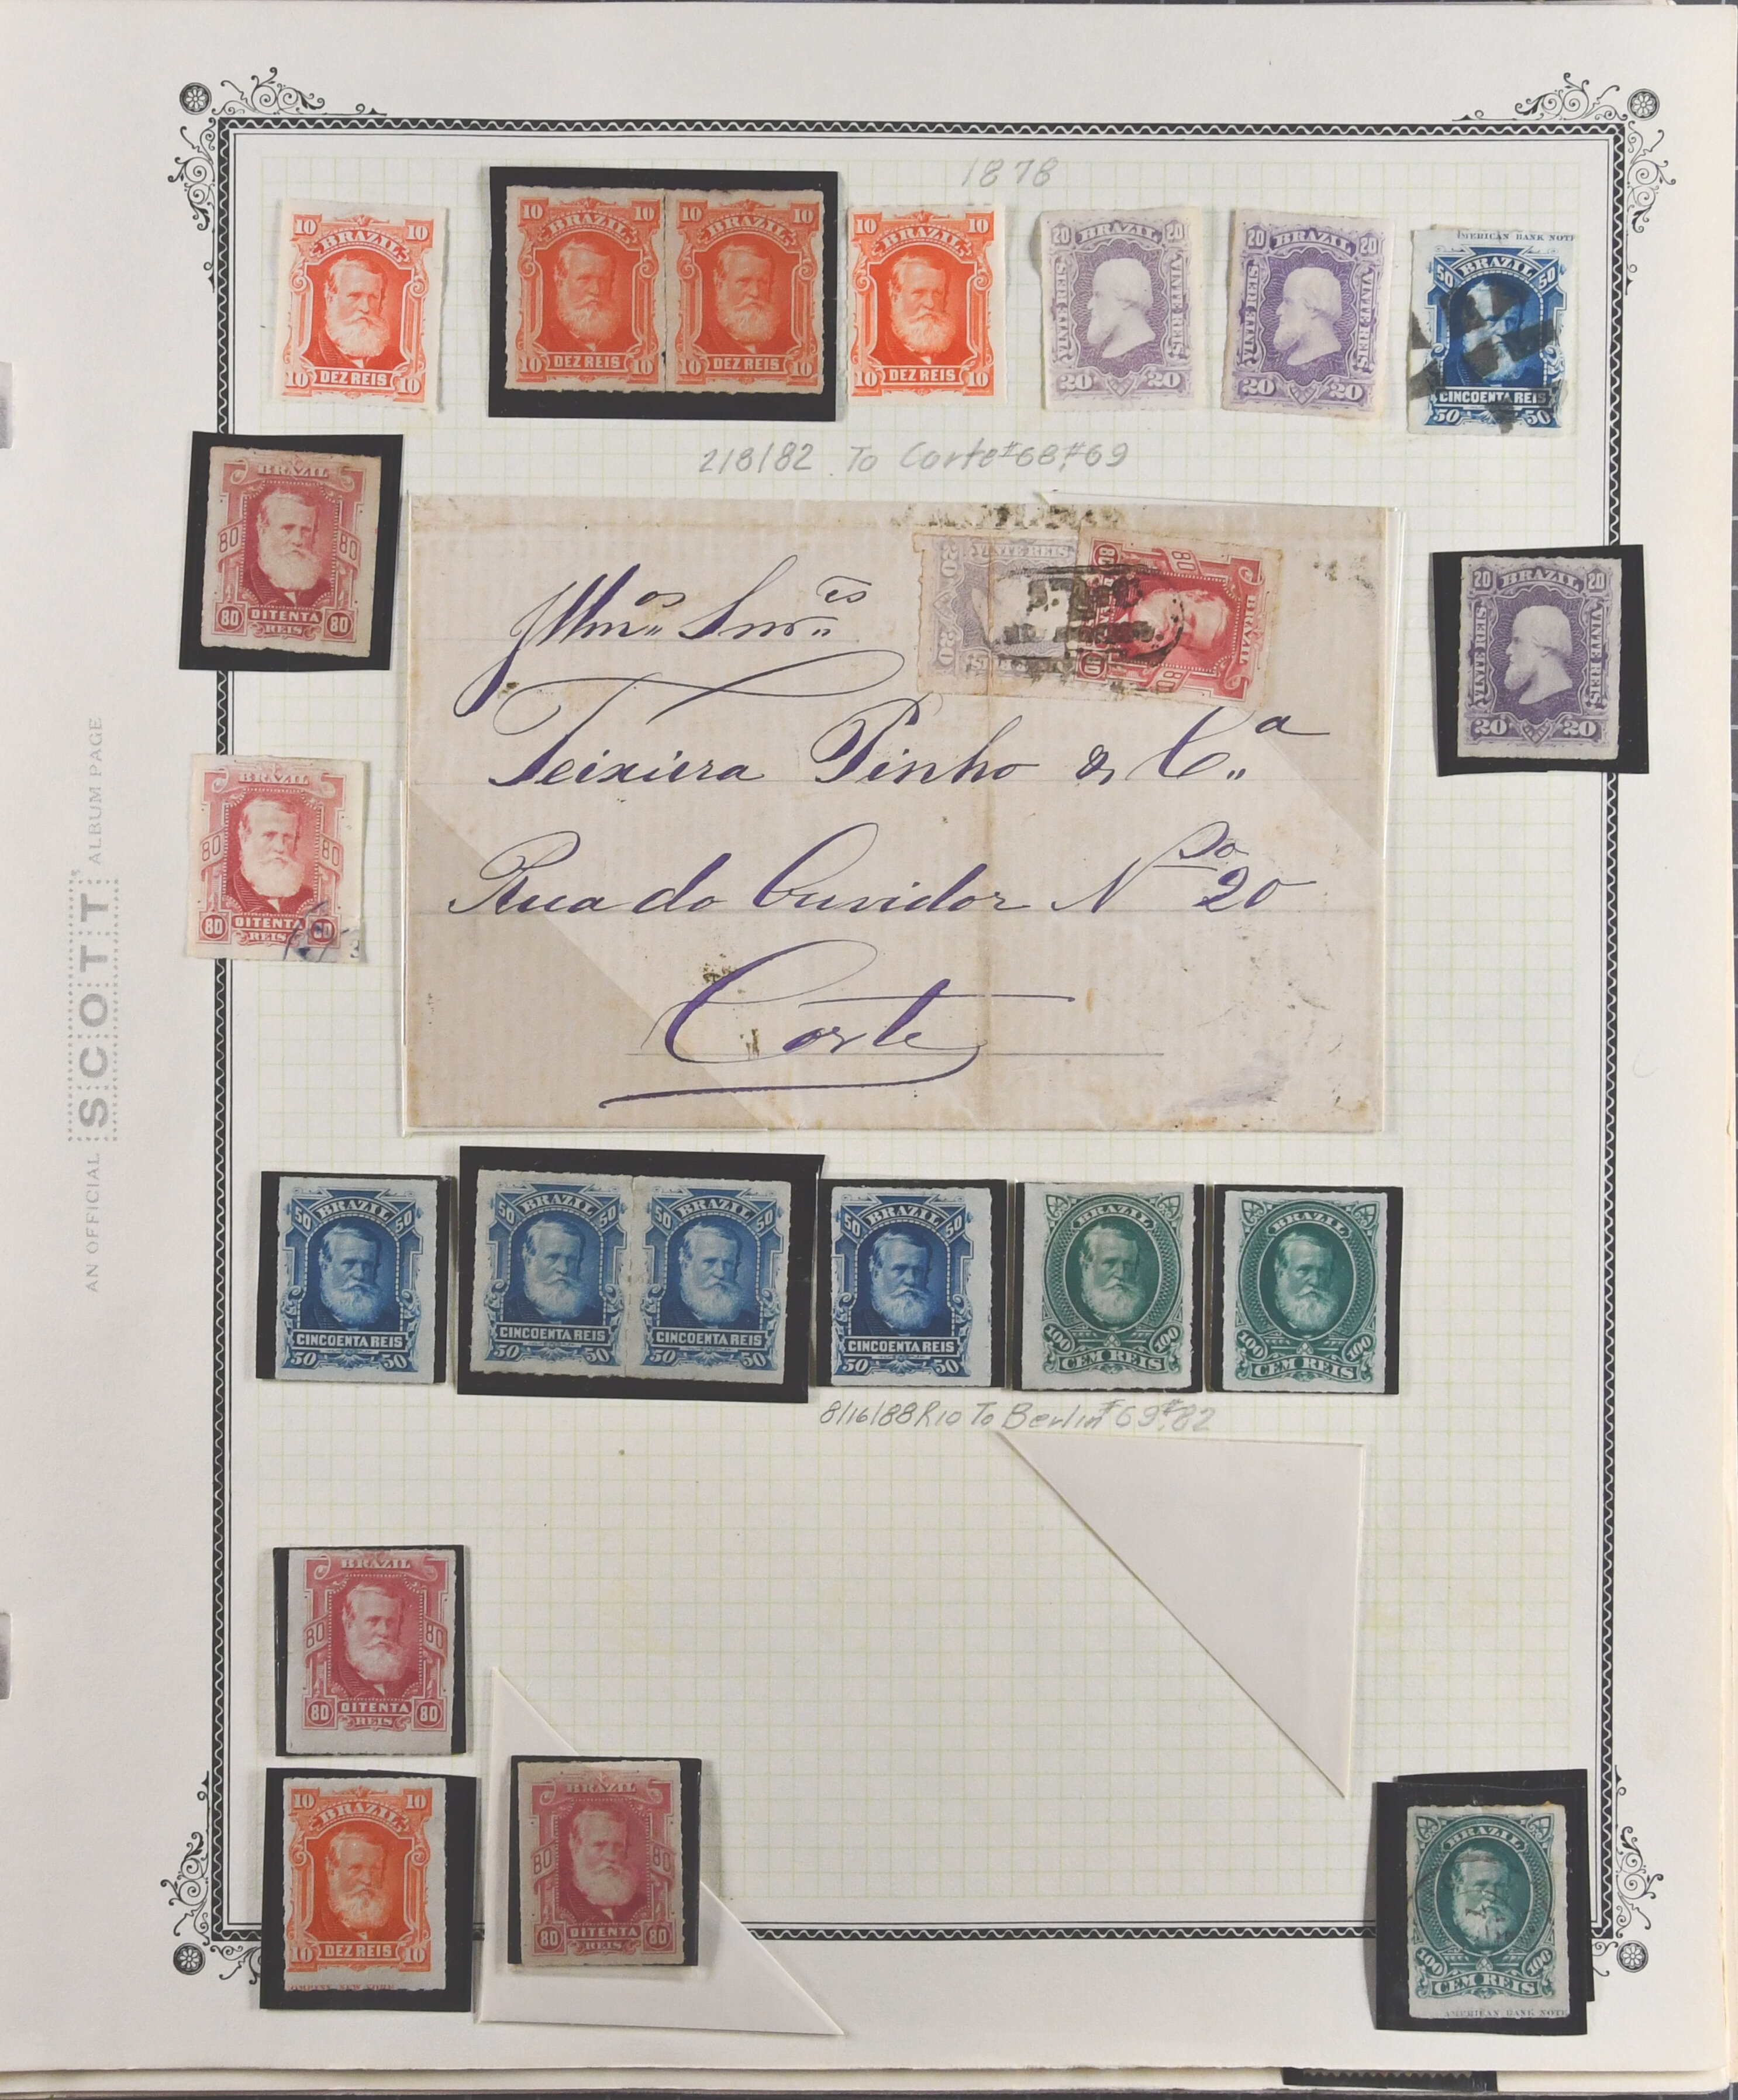 1878
10 10
BRAZIL
DEZ REIS
10 10
10 10
BRAZIL
DEZ REIS
10 10
10 10
BRAZIL
DEZ REIS
10 10
10 10
BRAZIL
DEZ REIS
10 10
20 BRAZIL 20
VINTE REIS VINTE REIS
20 20
20 BRAZIL 20
VINTE REIS VINTE REIS
20 20
MERICAN BANK NOTE
50 BRAZIL 50
CINCOENTA REIS
50 50
2/8/82 To Corte #68, #69
BRAZIL
80 80
80 OITENTA 80
REIS
BRAZIL
80 80
80 OITENTA 80
REIS
20 BRAZIL 20
VINTE REIS VINTE REIS
20 20
VINTE REIS
20
20
BRAZIL
80
80
80
Illmos Snres
Teixeira Pinho & Ca
Rua do Ouvidor No 20
Corte
AN OFFICIAL SCOTT ALBUM PAGE
50 BRAZIL 50
CINCOENTA REIS
50 50
50 BRAZIL 50
CINCOENTA REIS
50 50
50 BRAZIL 50
CINCOENTA REIS
50 50
50 BRAZIL 50
CINCOENTA REIS
50 50
BRAZIL
100 100
CEM REIS
BRAZIL
100 100
CEM REIS
8/16/88 Rio To Berlin #69, #82
BRAZIL
80 80
80 OITENTA 80
REIS
10 10
BRAZIL
DEZ REIS
10 10
OMPANY NEW YORK
BRAZIL
80 80
80 OITENTA 80
REIS
BRAZIL
100 100
CEM REIS
AMERICAN BANK NOTE